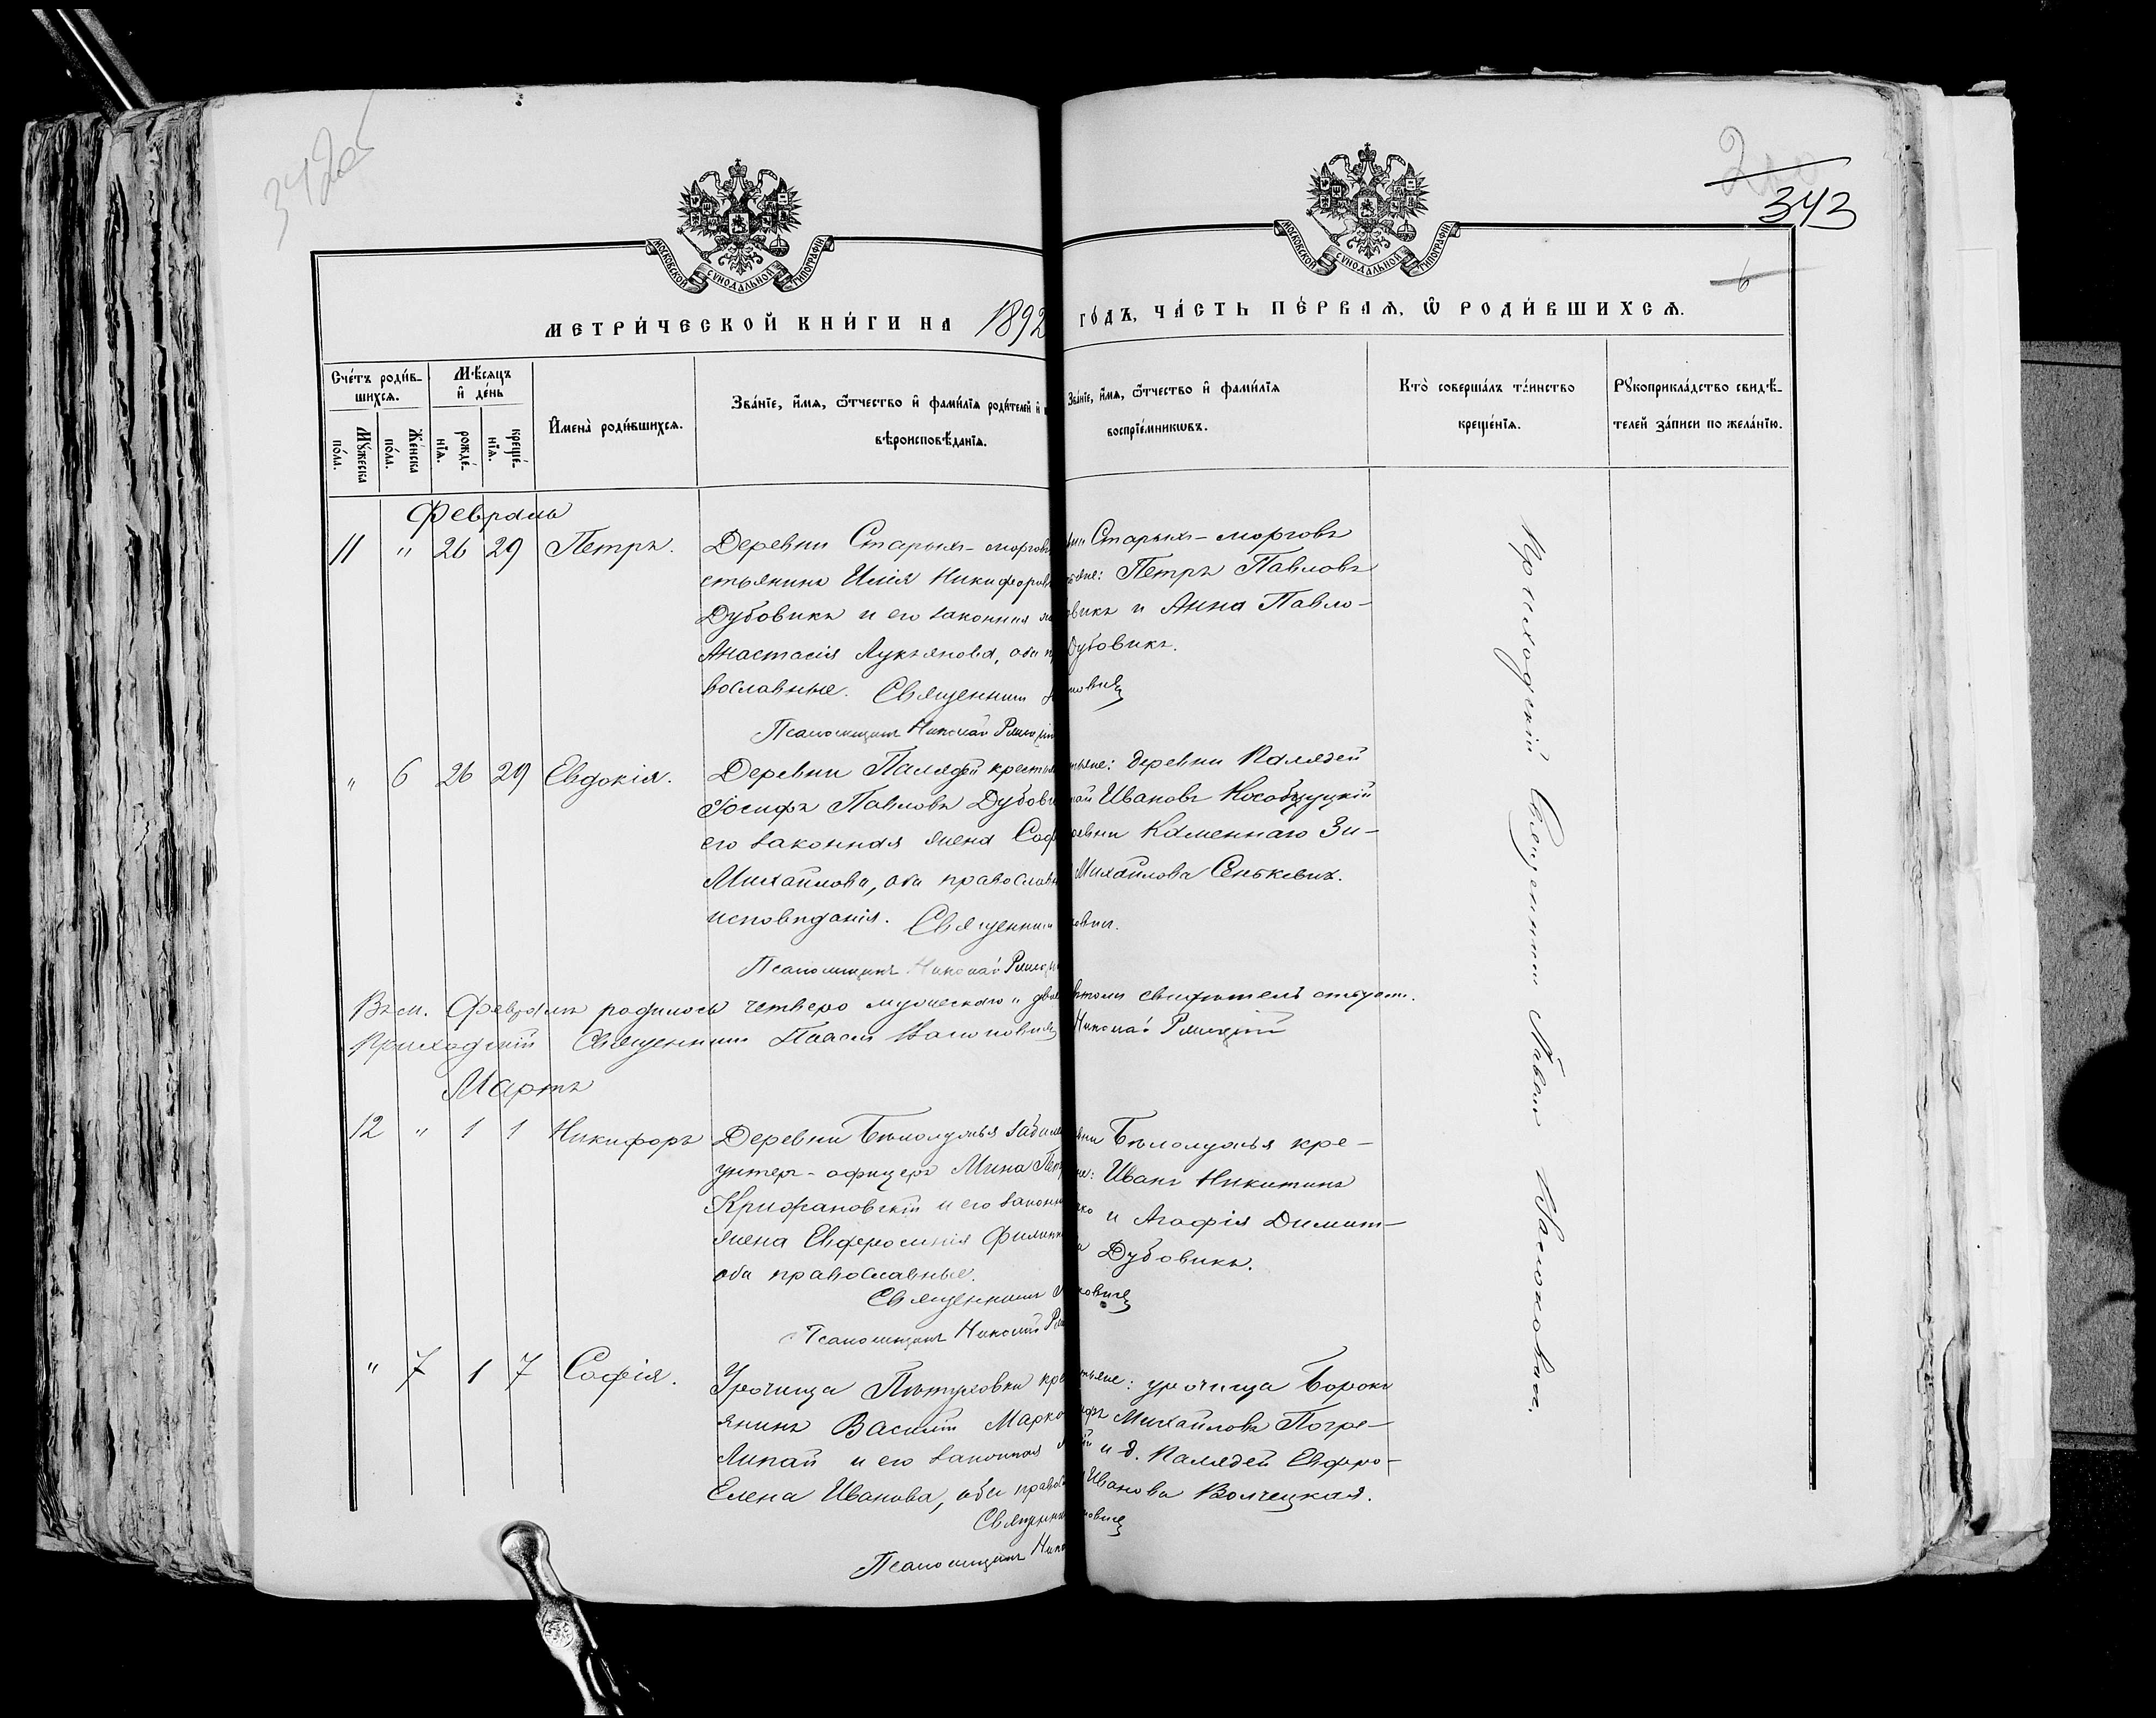 342об
200
343
6
МОСКОВСКОЙ СУНОДАЛЬНОЙ ТИПОГРАФІИ
МОСКОВСКОЙ СУНОДАЛЬНОЙ ТИПОГРАФІИ
МЕТРИ́ЧЕСКОЙ КНИ́ГИ НА 1892
ГО́ДЪ, ЧА́СТЬ ПЕ́РВАѦ, Ѿ РОДИ́ВШИХСѦ.
Сче́тъ роди́в-
шихсѧ.
Мꙋ́жеска по́ла.
Же́нска по́ла.
Мѣ́сяцъ
и҆ де́нь
рожде́-
нїѧ.
креще́-
нїѧ.
И҆мена̀ роди́вшихсѧ.
Зва́нїе, и҆́мѧ, ѻ҆́тчество и҆ фами́лїѧ роди́телей и҆
вѣроисповѣ́данїѧ.
Зва́нїе, и҆́мѧ, ѻ҆́тчество и҆ фами́лїѧ
воспрїе́мникѡвъ.
Кто̀ соверша́лъ та́инство
креще́нїѧ.
Рꙋкоприкла́дство свидѣ́-
телей за́писи по жела́нїю.
Февраль
11 " 26 29 Петръ.
Деревни Старыхъ-морговъ
стьянинъ Илія Никифоровъ
Дубовикъ и его законная
Анастасія Лукьянова, оба п
вославные. Священникъ
Псаломщикъ Николай
ни Старыхъ-морговъ
тьяне: Петръ Павловъ
овикъ и Анна Павло-
Дубовикъ.
новичъ
" 6 26 29 Евдокія.
Деревни Палядей крестья
Іосифъ Павловъ Дубови
его законная жена Соф
Михайлова, оба православн
исповѣданія. Священник
Псаломщикъ Николай
тьяне: деревни Палядей
лай Ивановъ Кособуцкій
ревни Каменнаго Зи-
Михайлова Сенькевичъ.
ковичъ.
Въ м. Февралѣ родилось четверо мужескаго и двое
этомъ свидѣтельствуютъ.
Приходскій Священникъ Павелъ
Николай
Мартъ
12 " 1 1 Никифоръ
Деревни Бѣлолужья
унтеръ-офицеръ Мина Пет
Крижановскій и его законн
жена Евфросинія Филипп
оба православные.
Священникъ
Псаломщикъ Николай
вни Бѣлолужья кре-
не: Иванъ Никитинъ
ко и Агафія Димит-
а Дубовикъ.
ковичъ
" 7 1 7 Софія.
Урочища Пѣтуховки кре
янинъ Василій Марко
Липай и его законная
Елена Иванова, оба правос
Священник
Псаломщикъ Нико
тьяне: урочища Бороки
ифъ Михайловъ Погре-
ій и д. Палядей Евфро-
Иванова Волчецкая.
новичъ
Приходскій Священникъ Павелъ